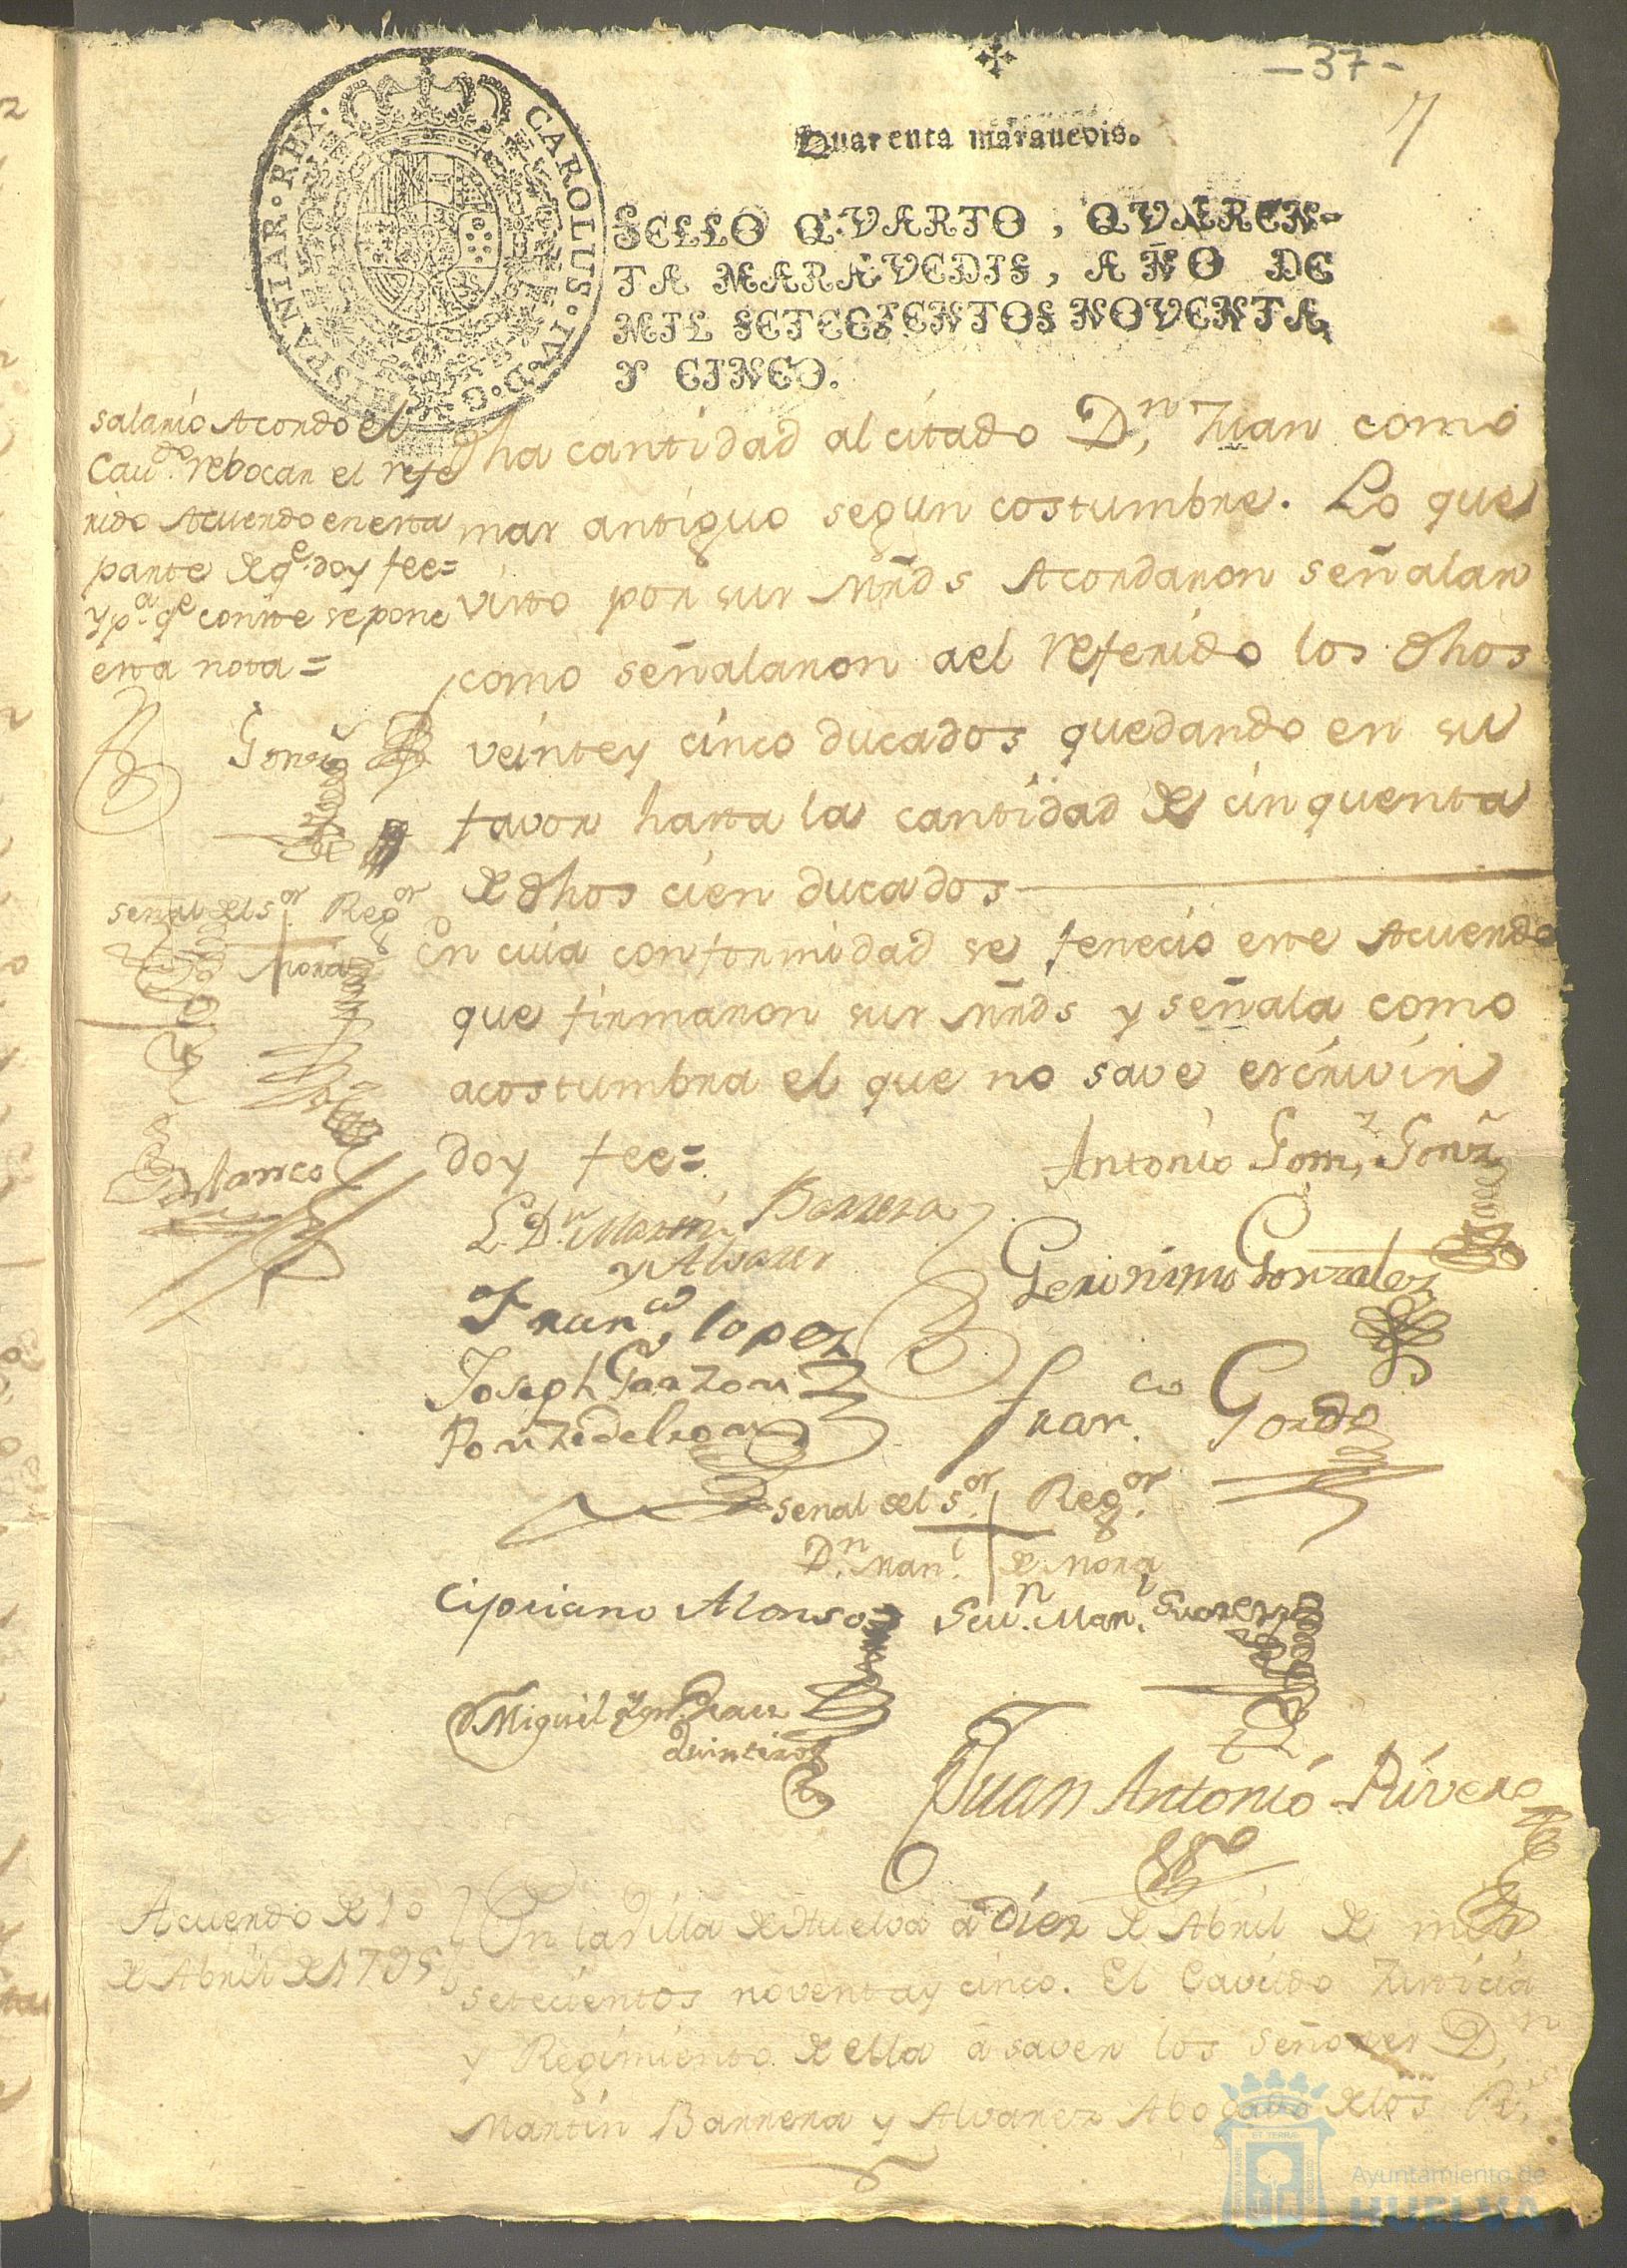 - 37 -
CAROLUS · IV · D · G · HISPANIAR · REX ·
Quarenta marauedis.
SELLO QVARTO, QVAREN-
TA MARAVEDIS, AÑO DE
MIL SETECIENTOS NOVENTA
Y CINCO.
salario Acordo el
Cavdo. rebocar el refe
rido Acuerdo en esta
parte de qe. doy fee=
y pa. qe conste se pone
esta nota=
señal del sor. Regor
Mora
Blanco
dha cantidad al citado Dn. Juan como
mas antiguo segun costumbre. Lo que
visto por sus Mrds Acordaron señalar
como señalaron ael referido los dhos
veinte y cinco ducados quedando en su
favor hasta la cantidad de cinquenta
de dhos cien ducados
En cuia conformidad se fenecio este Acuerdo
que firmaron sus Mrds y señala como
acostumbra el que no save escrivir
doy fee=
Antonio Gomz. Gonz
L. Dn. Martin Barrera
y Alvarez
Geronimo Gonzalez
Franco. lopez
Joseph Garzon
Ponze de leon
Franco. Gordo
señal del sor. Regor.
Dn. Manl. de Mora
Cipriano Alonso
Sevn. Manl. Suarez
Miguel
Quintero
Juan Antonio Rivero
Acuerdo de 10
de Abril de 1795
En la Villa de Huelva a Diez de Abril de mil
setecientos noventa y cinco. El Cavildo Justicia
y Regimiento de ella á saver los Señores Dn.
Martin Barrera y Alvarez Abogado de los Rs.
Ayuntamiento de
HUELVA